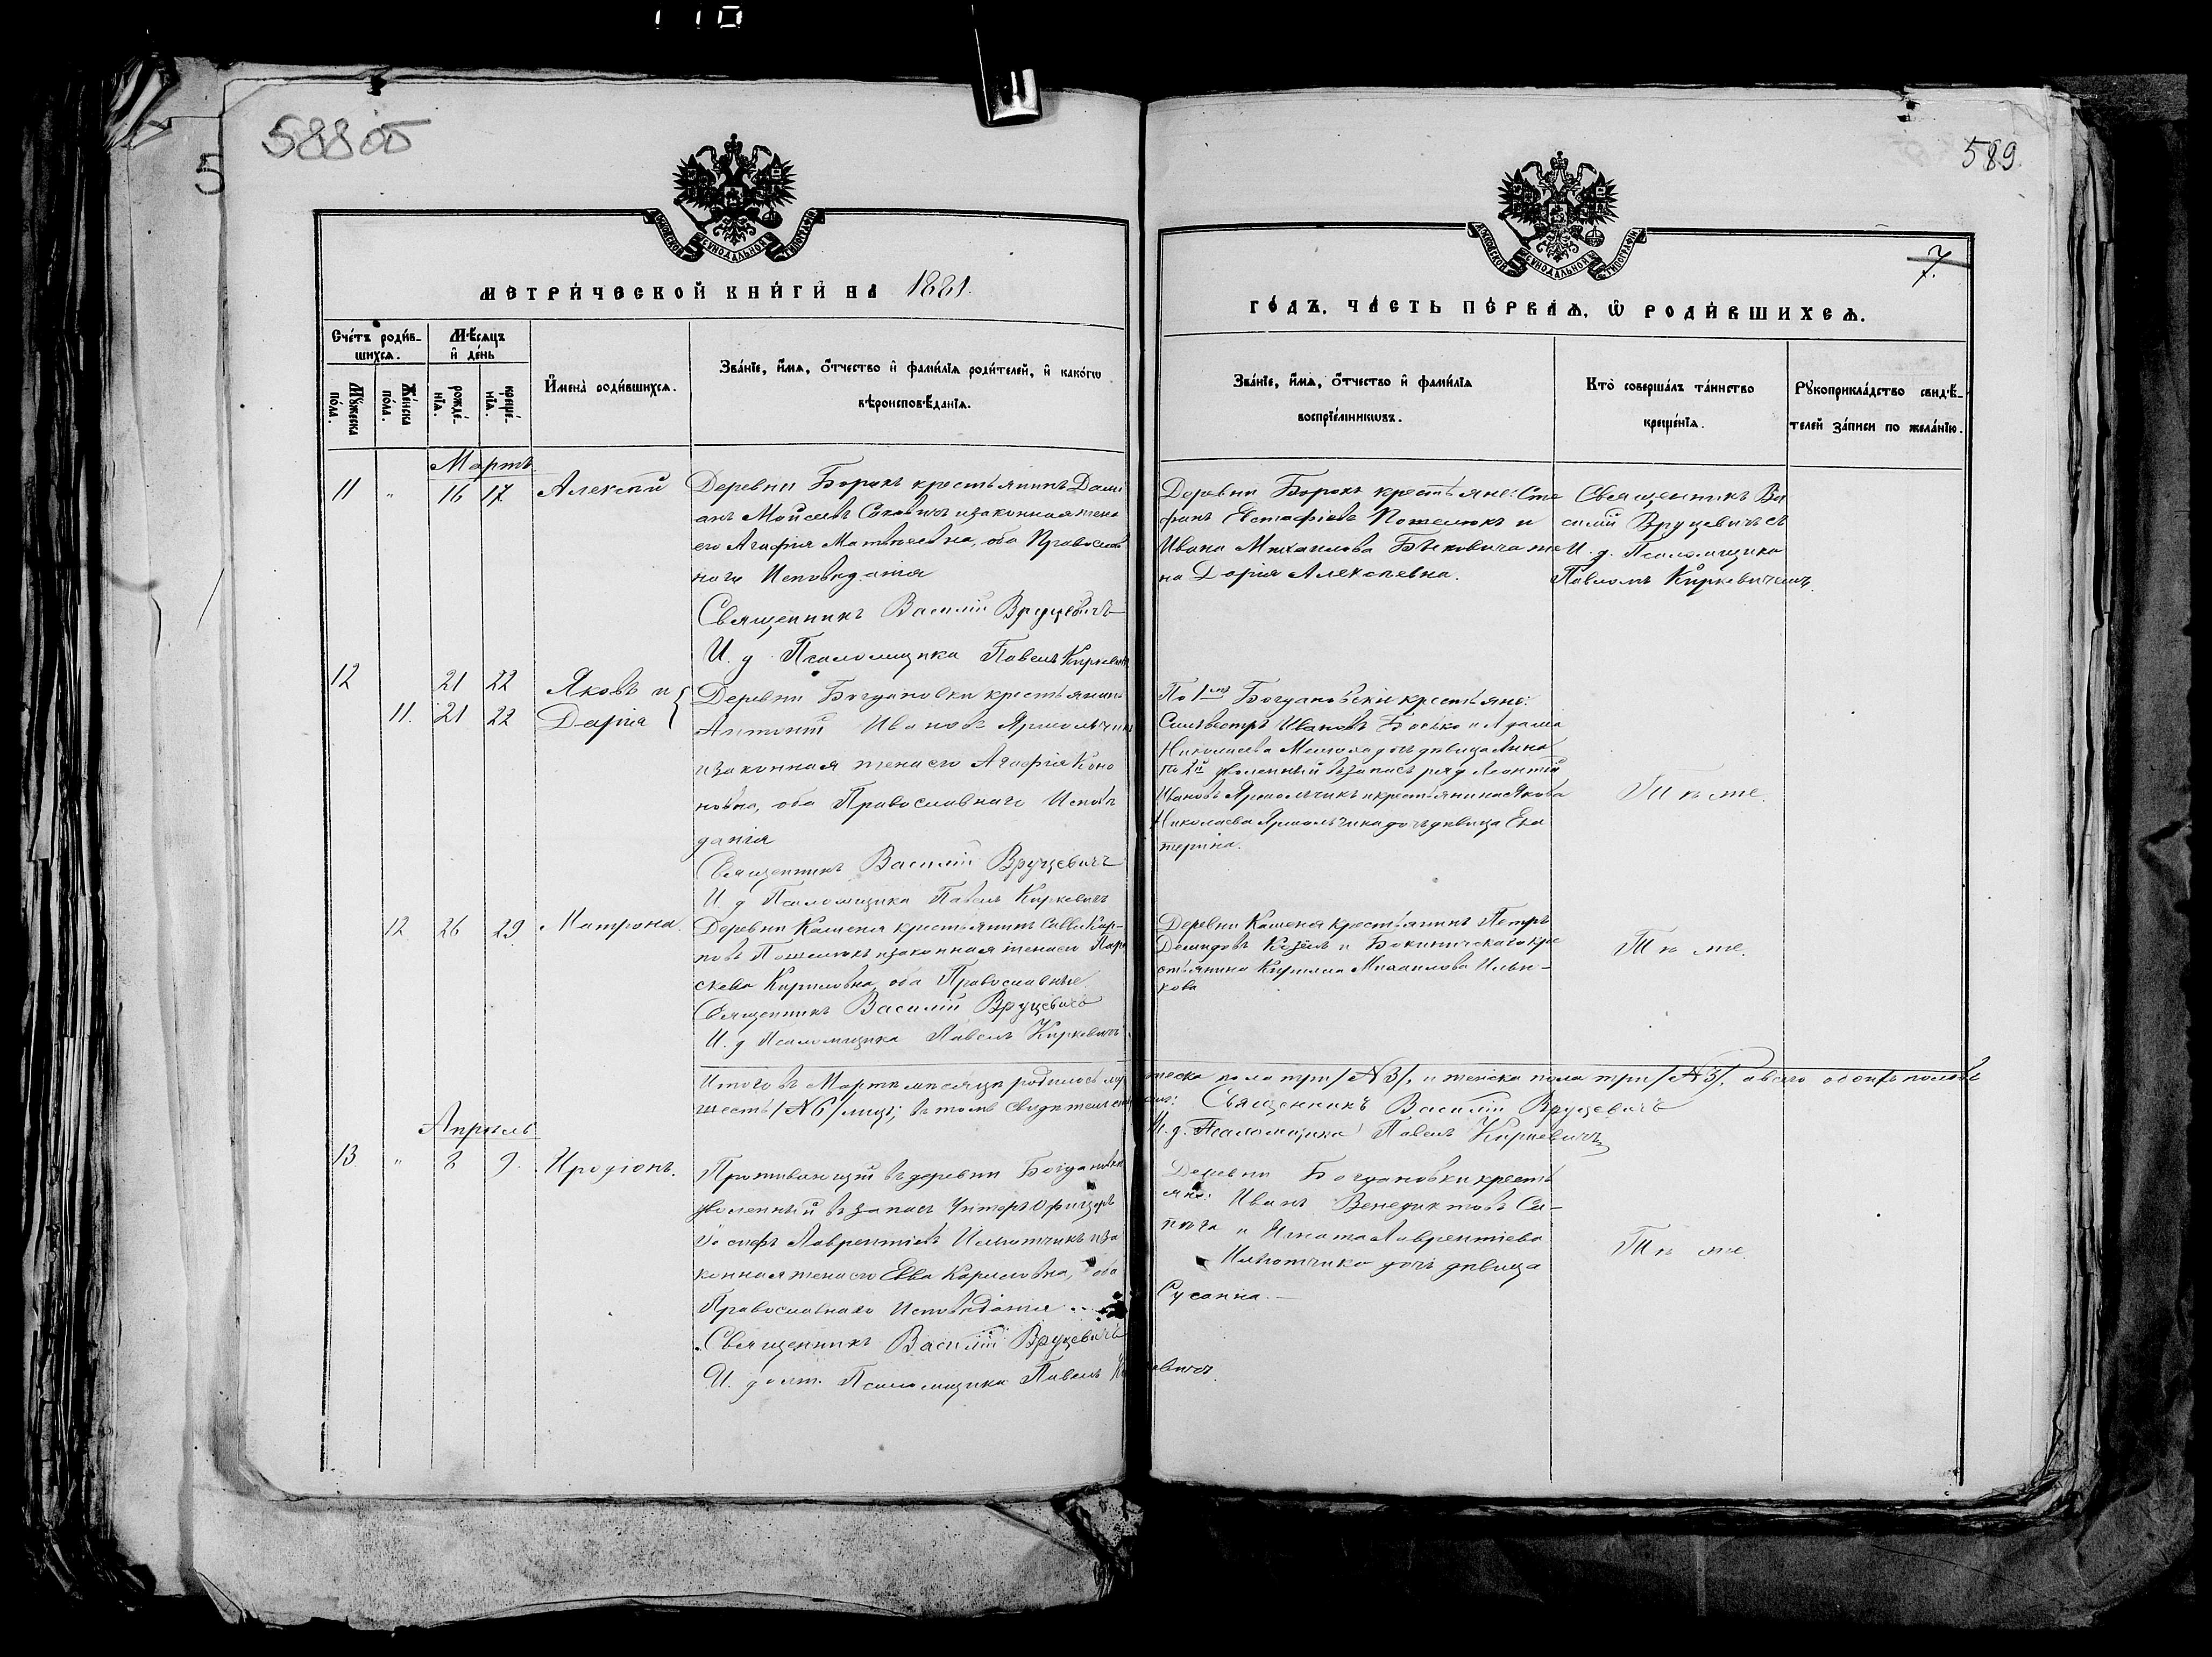 110
588 об
589
7
МОСКОВСКОЙ СѴНОДАЛЬНОЙ ТИПОГРАФІИ
МОСКОВСКОЙ СѴНОДАЛЬНОЙ ТИПОГРАФІИ
МЕТРИ́ЧЕСКОЙ КНИ́ГИ НА 1881.
ГО́ДЪ, ЧА́СТЬ ПЕ́РВАѦ, Ѡ РОДИ́ВШИХСѦ.
Сче́тъ роди́в-
шихсѧ.
Мꙋжеска по́ла.
Же́нска по́ла.
Мѣ́сѧцъ
и де́нь
рожде́-
нїѧ.
креще́-
нїѧ.
И́мена роди́вшихсѧ.
Зва́нїе, и́мѧ, о́тчество и фами́лїѧ роди́телей, и како́гѡ
вѣроисповѣ́данїѧ.
Зва́нїе, и́мѧ, о́тчество и фами́лїѧ
воспрїе́мникѡвъ.
Кто̀ соверша́лъ та́инство
креще́нїѧ.
Рꙋкоприкла́дство свидѣ́-
телей за́писи по жела́нїю.
Мартъ
11 " 16 17 Алексій
Деревни Борокъ крестьянинъ Дамі
анъ Мойсеевъ Саковичъ и законная жена
его Агафія Матвѣевна, оба Православ
наго Исповѣданія
Священникъ Василій Вруцевичъ
И. д. Псаломщика Павелъ Киркевичъ
Деревни Борокъ крестьяне: Сте
фанъ Евстафіевъ Потелюкъ и
Ивана Михаилова Бѣковича же
на Дарія Алексѣевна.
Священникъ Ва
силій Вруцевичъ съ
И. д. Псаломщика
Павломъ Киркевичемъ.
12 21 22 Яковъ и
11. 21 22 Дарія
Деревни Богдановки крестьянинъ
Антоній Ивановъ Ярмольчикъ
и законная жена его Агафія Коно
новна, оба Православнаго Исповѣ
данія
Священникъ Василій Вруцевичъ
И. д. Псаломщика Павелъ Киркевичъ
По 1му Богдановски крестьяне:
Сильвестръ Ивановъ и Адама
Николаева дочь дѣвица Анна
По 2й уволенный въ запасъ ряд. Леонтій
Ивановъ Ярмольчикъ и крестьянина Якова
Николаева Ярмольчика дочь дѣвица Ека
терина.
Тѣ же.
12 26 29 Матрона.
Деревни Каменя крестьянинъ Савва Кар-
повъ Потелюкъ и законная жена его Пара
скева Кириловна, оба Православные
Священникъ Василій Вруцевичъ
И. д Псаломщика Павелъ Киркевичъ
Деревни Каменя крестьянинъ Петръ
Демидовъ Козелъ и Бокиничскаго кре
стьянина Кирилла Михаилова Ильи-
кова
Тѣ же.
Итого въ Мартѣ мѣсяцѣ родилось му жеска пола три /№3/, и женска пола три /№3/, а всего обоихъ половъ
шесть /№6/ лицъ; въ томъ свидѣтельств емъ: Священникъ Василій Вруцевичъ
И. д. Псаломщика Павелъ Киркевичъ
Апрѣль
13 " 8 9. Иродіонъ.
Проживающій въ деревни Богдановки
уволенный въ запасъ Унтеръ Офицеръ
Іосифъ Лаврентіевъ Ильютчикъ и за
конная жена его Евва Кариловна, оба
Православнаго Исповѣданія
Священникъ Василій Вруцевичъ
И. долж. Псаломщика Павелъ Ки евичъ.
Деревни Богдановки крестья
яне: Иванъ Венедиктовъ Са-
пѣга и Игната Лаврентіева
Ильютчика дочь дѣвица
Сусанна.
Тѣ же